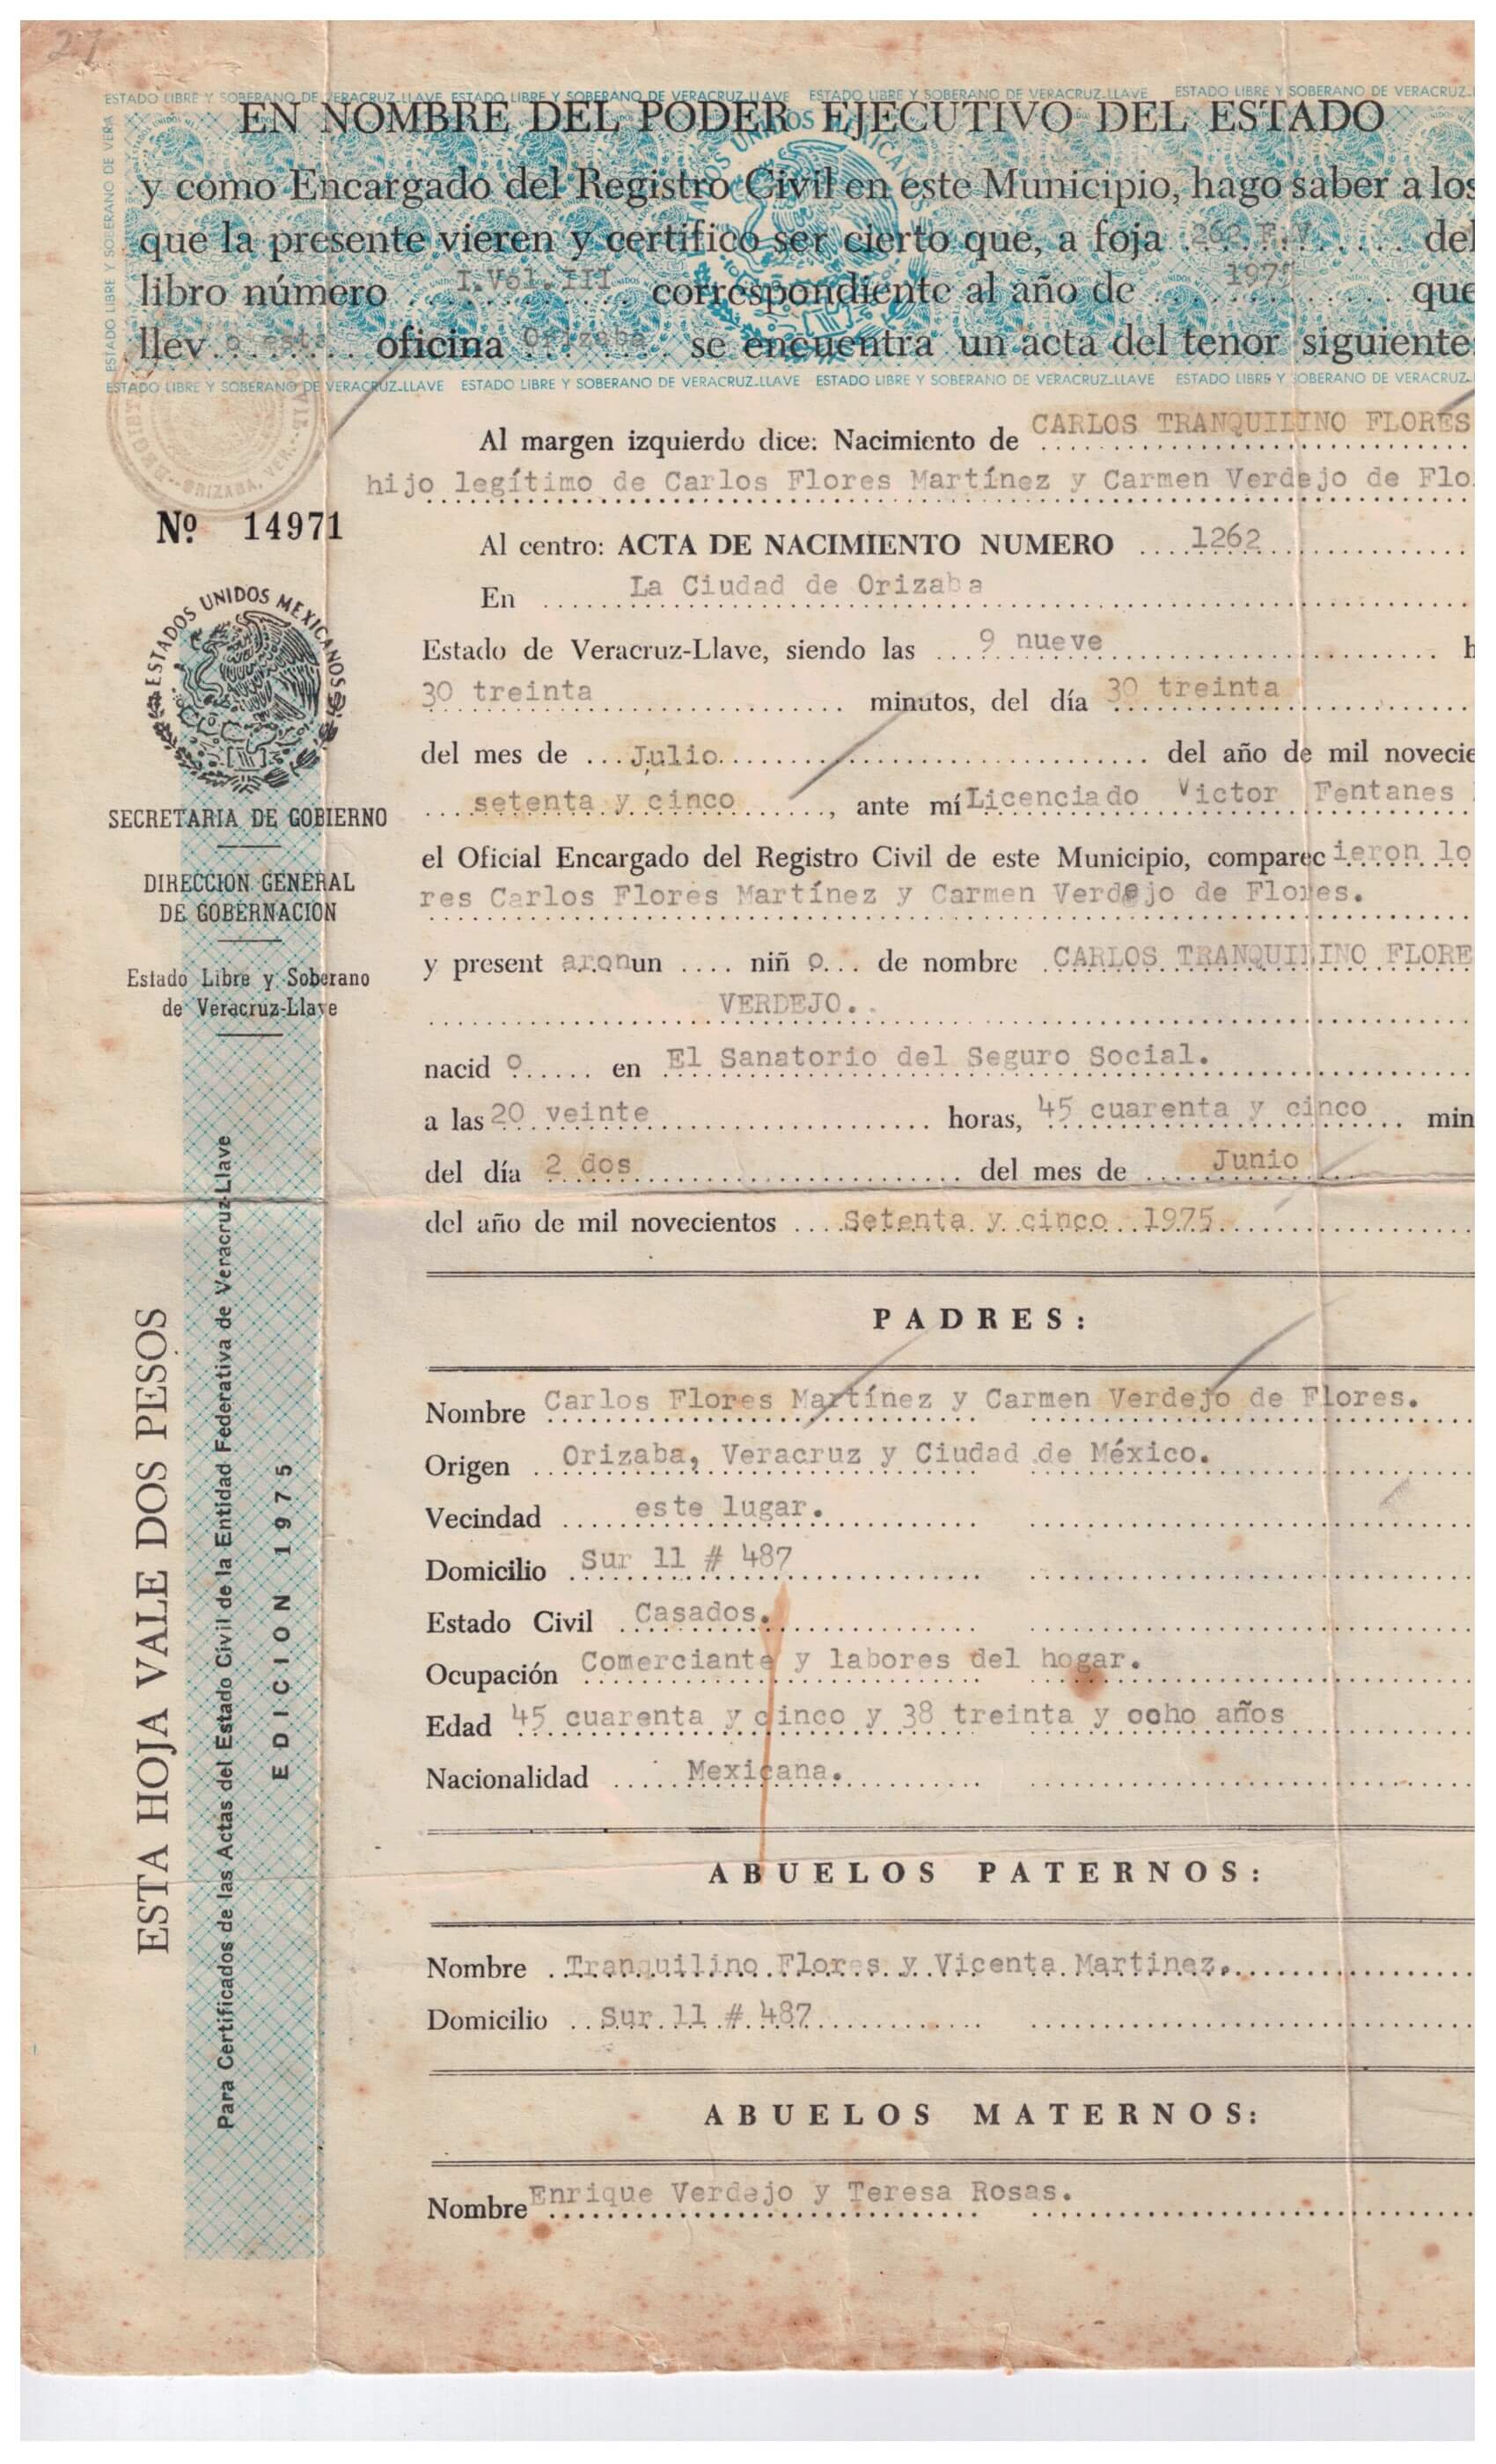 27
ESTADO LIBRE Y SOBERANO DE VERACRUZ-LLAVE ESTADO LIBRE Y SOBERANO DE VERACRUZ-LLAVE ESTADO LIBRE Y SOBERANO DE VERACRUZ-LLAVE ESTADO LIBRE Y SOBERANO DE VERACRUZ-
EN NOMBRE DEL PODER EJECUTIVO DEL ESTADO
y como Encargado del Registro Civil en este Municipio, hago saber a los
que la presente vieren y certifico ser cierto que, a foja 262 F.V. del
libro número I. Vol. III correspondiente al año de 1975 que
llev a esta oficina Orizaba se encuentra un acta del tenor siguiente
ESTADO LIBRE Y SOBERANO DE VERACRUZ-LLAVE ESTADO LIBRE Y SOBERANO DE VERACRUZ-LLAVE ESTADO LIBRE Y SOBERANO DE VERACRUZ-LLAVE ESTADO LIBRE Y SOBERANO DE VERACRUZ-
ORIZABA, VER.
Al margen izquierdo dice: Nacimiento de CARLOS TRANQUILINO FLORES
hijo legítimo de Carlos Flores Martínez y Carmen Verdejo de Flo
Nº 14971
Al centro: ACTA DE NACIMIENTO NUMERO 1262
En La Ciudad de Orizaba
ESTADOS UNIDOS MEXICANOS
Estado de Veracruz-Llave, siendo las 9 nueve h
30 treinta minutos, del día 30 treinta
del mes de Julio del año de mil novecie
setenta y cinco, ante mí Licenciado Victor Fentanes
SECRETARIA DE GOBIERNO
el Oficial Encargado del Registro Civil de este Municipio, comparec ieron lo
res Carlos Flores Martínez y Carmen Verdejo de Flores.
DIRECCION GENERAL
DE GOBERNACION
y present aron un niñ o de nombre CARLOS TRANQUILINO FLORE
VERDEJO.
Estado Libre y Soberano
de Veracruz-Llave
nacid o en El Sanatorio del Seguro Social.
a las 20 veinte horas, 45 cuarenta y cinco min
del día 2 dos del mes de Junio
del año de mil novecientos Setenta y cinco 1975
ESTA HOJA VALE DOS PESOS
Para Certificados de las Actas del Estado Civil de la Entidad Federativa de Veracruz-Llave
EDICION 1975
PADRES:
Nombre Carlos Flores Martínez y Carmen Verdejo de Flores.
Origen Orizaba, Veracruz y Ciudad de México.
Vecindad este lugar.
Domicilio Sur 11 # 487
Estado Civil Casados.
Ocupación Comerciante y labores del hogar.
Edad 45 cuarenta y cinco y 38 treinta y ocho años
Nacionalidad Mexicana.
ABUELOS PATERNOS:
Nombre Tranquilino Flores y Vicenta Martinez.
Domicilio Sur 11 # 487
ABUELOS MATERNOS:
Nombre Enrique Verdejo y Teresa Rosas.